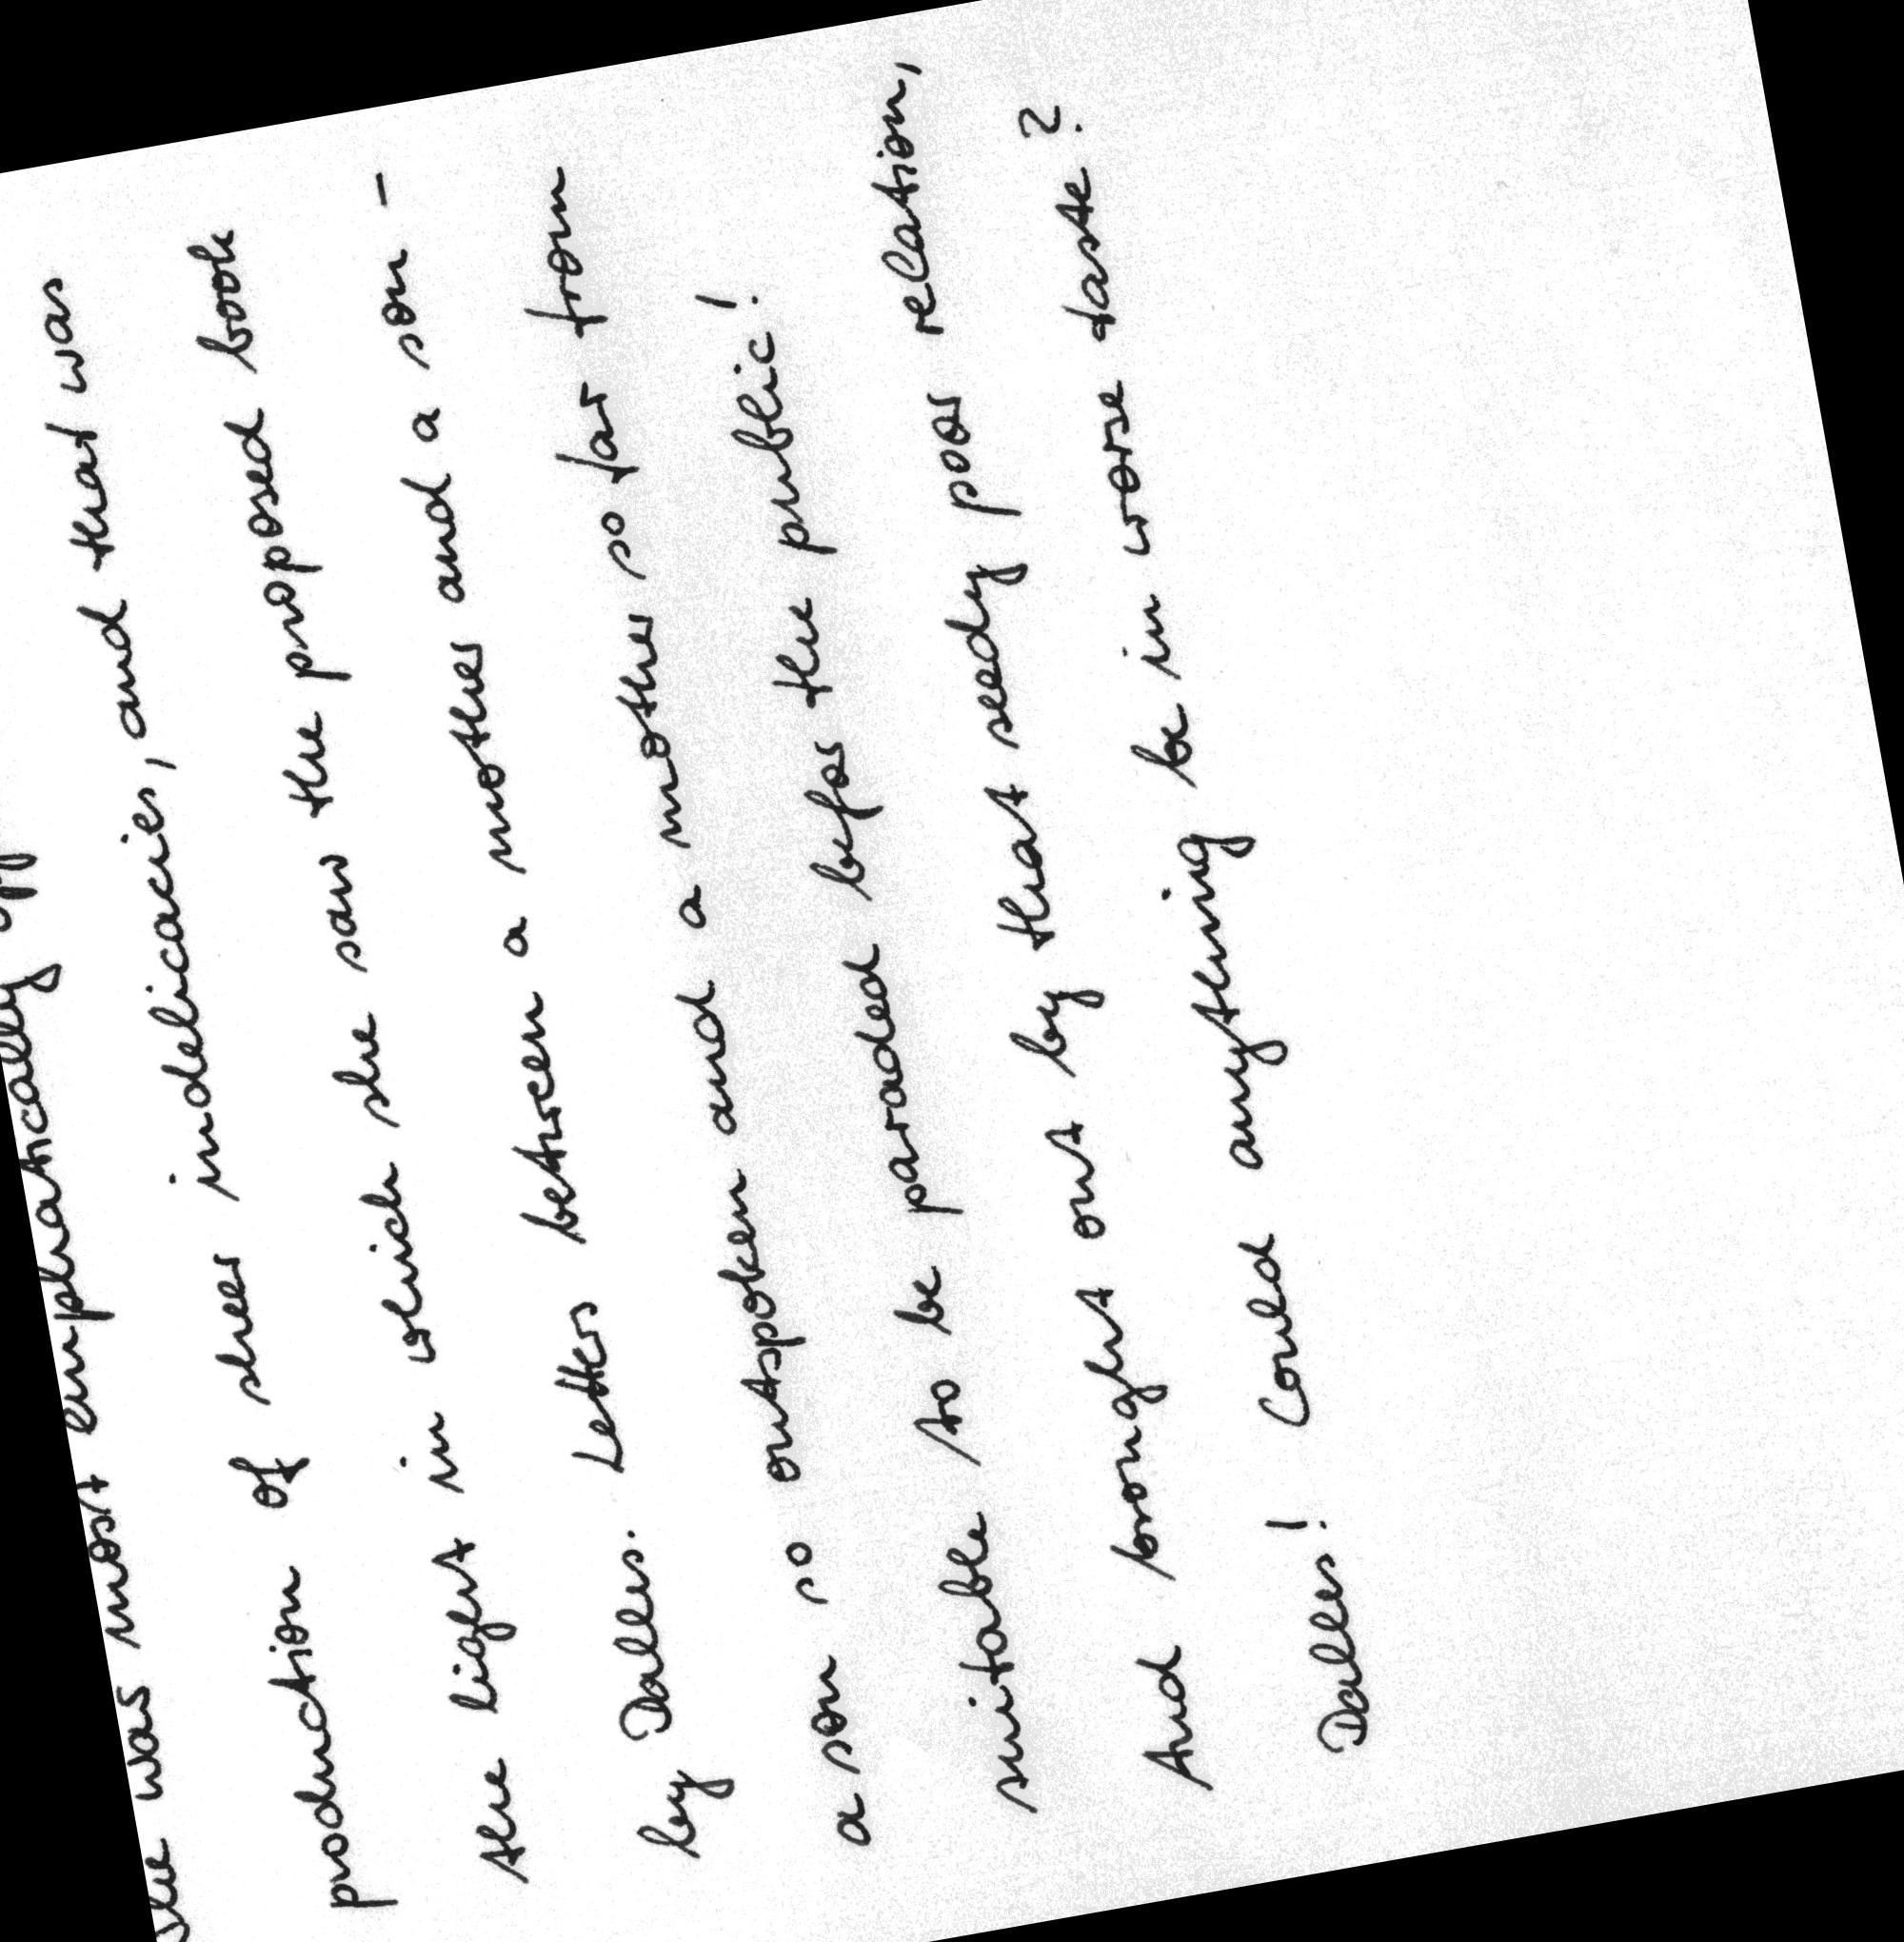 She was most emphatically
production of sheer indelicacies, and that was
the light in which she saw the proposed book
by Dalles. Letters between a mother and a son -
a son so outspoken and a mother so far from
suitable to be paraded befor the public!
And brought out by that seedy poor relation,
Dalles! Could anything be in worse taste?